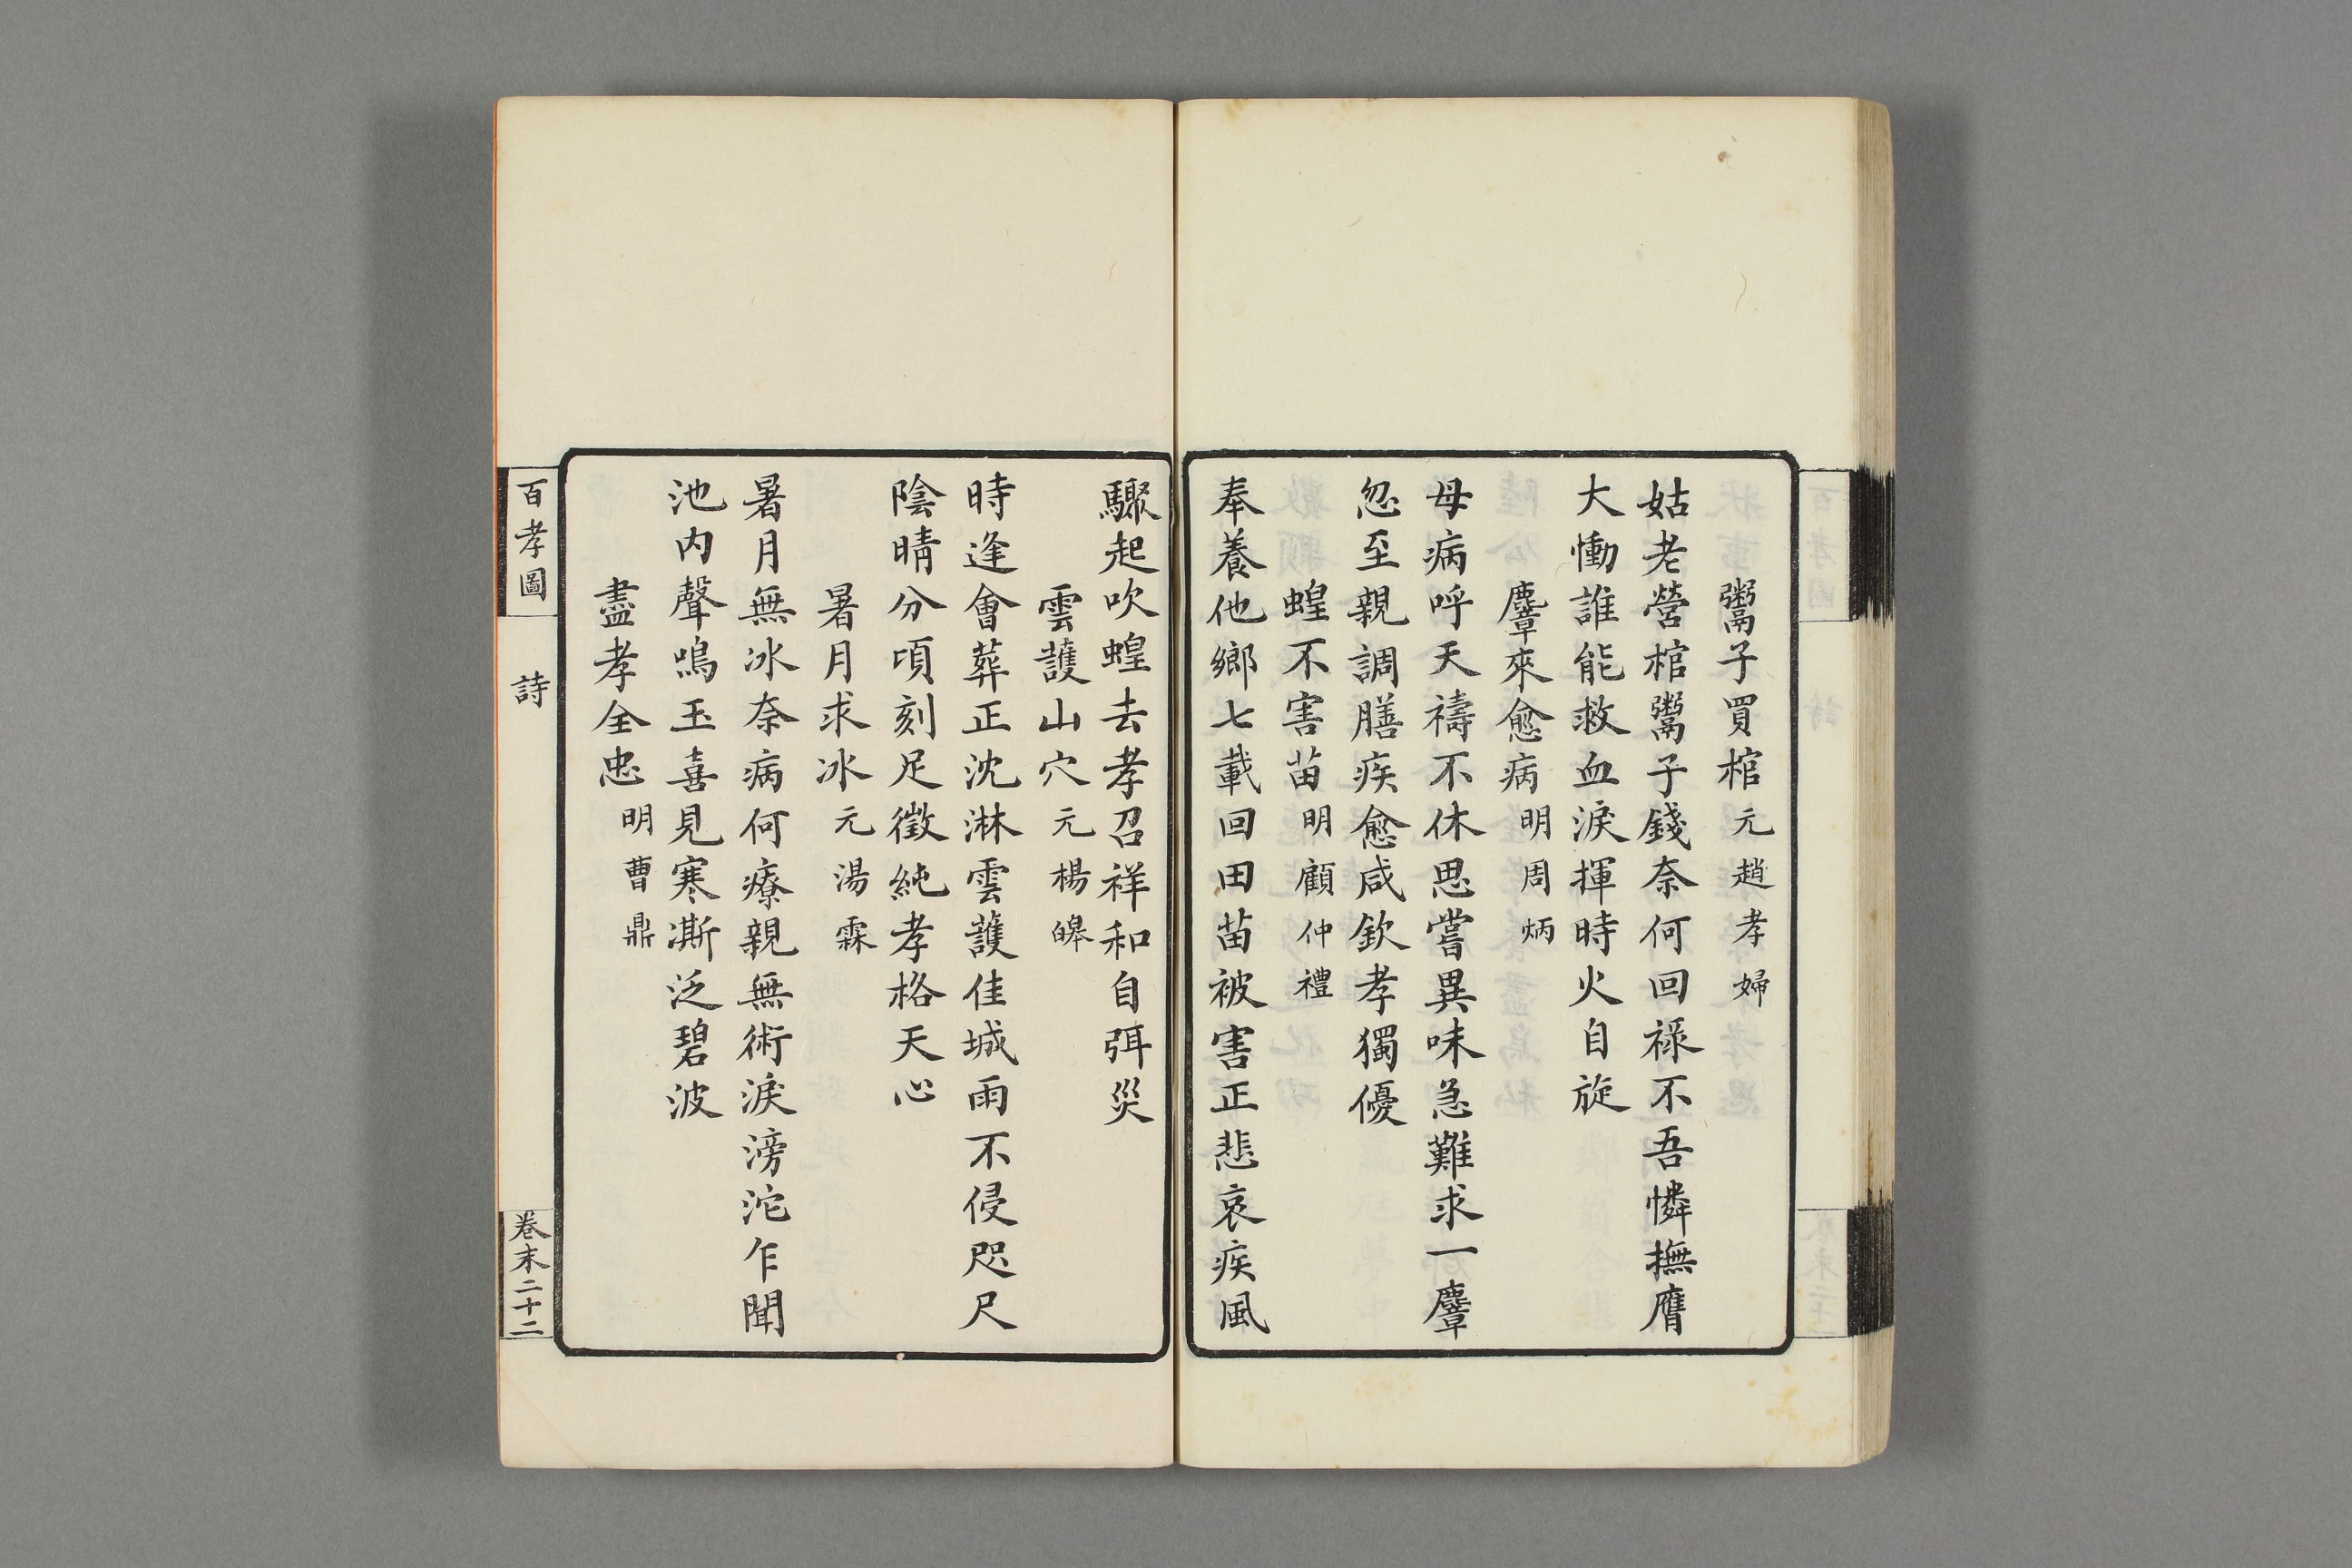 鬻子買棺 元趙孝婦
姑老營棺鬻子錢奈何回祿不吾憐撫膺
大慟誰能救血淚揮時火自旋
麞來愈病 明周炳
母病呼天禱不休思嘗異味急難求一麞
忽至親調膳疾愈咸欽孝獨優
蝗不害苗 明顧仲禮
奉養他鄉七載回田苗被害正悲哀疾風
驟起吹蝗去孝召祥和自弭災
雲護山穴 元楊皞
時逢會葬正沈淋雲護佳城雨不侵咫尺
陰晴分頃刻足徵純孝格天心
暑月求冰 元湯霖
暑月無冰奈病何療親無術淚滂沱乍聞
池內聲嗚玉喜見寒澌泛碧波
盡孝全忠 明曹鼎
百孝圖
詩
卷末二十二